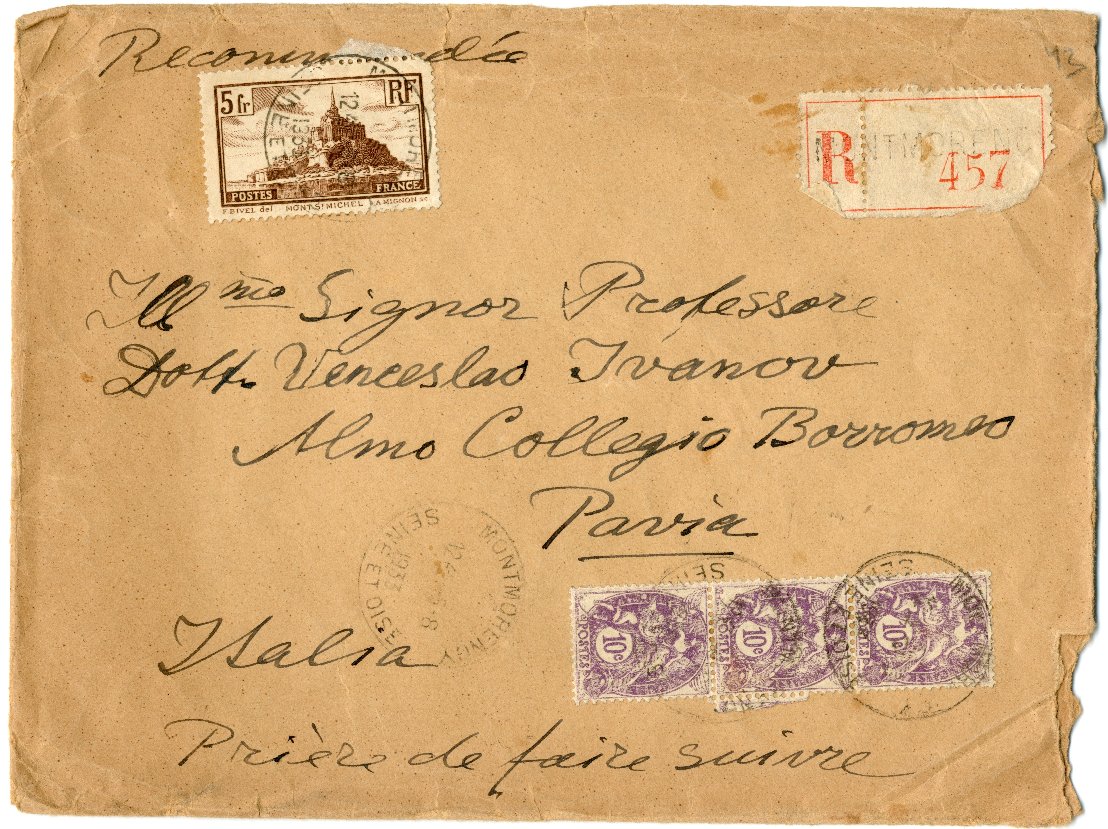 Recommandée
5 fr RF
POSTES FRANCE
MONT ST MICHEL
R MONTMORENCY
457
Ill mo Signor Professore
Dott. Venceslao Ivanov
Almo Collegio Borromeo
Pavia
MONTMORENCY
1933
SEINE ET OISE
Italia
10c POSTES
10c POSTES
10c POSTES
Prière de faire suivre